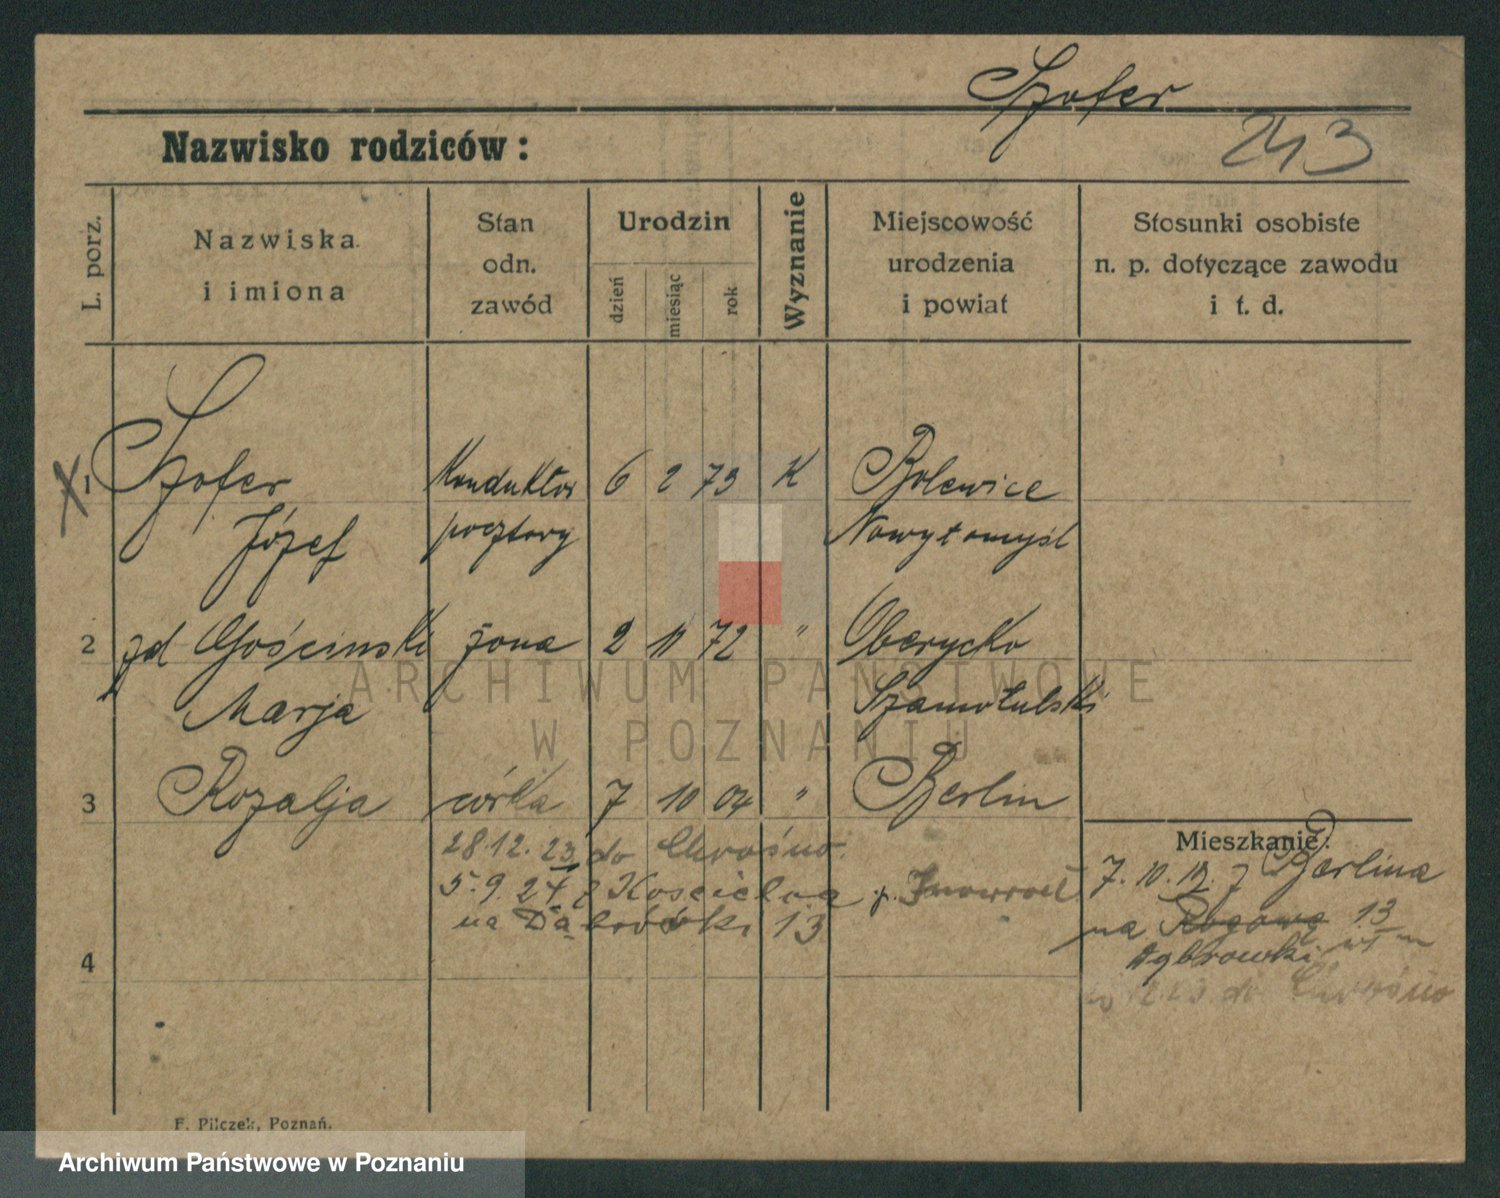 Szofer
243
Nazwisko rodziców:
L. porz.
Nazwiska
i imiona
Stan
odn.
zawód
Urodzin
dzień
miesiąc
rok
Wyznanie
Miejscowość
urodzenia
i powiat
Stosunki osobiste
n. p. dotyczące zawodu
i t. d.
1 Szofer Konduktor 6 2 73 K Bolewice
Józef pocztowy Nowytomyśl
2 zd Gościnski żona 2 11 72 " Oberycko
Marja Szamotulski
3 Rozalja córka 7 10 04 " Berlin
28.12.23 do Chrośno.
5.9.24 z Kościelna p.
na Dąbrówki 13
4
Mieszkanie:
7.10.19. z Berlina
na 13
Dąbrowki
do Chrośno
F. Pilczek, Poznań.
ARCHIWUM PAŃSTWOWE
W POZNANIU
Archiwum Państwowe w Poznaniu